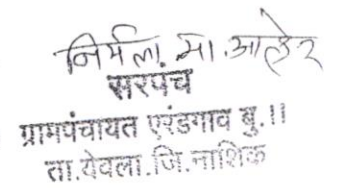 निर्मला. मा. आहेर
सरपंच
ग्रामपंचायत एरंडगाव बु.।।
ता.येवला.जि.नाशिक